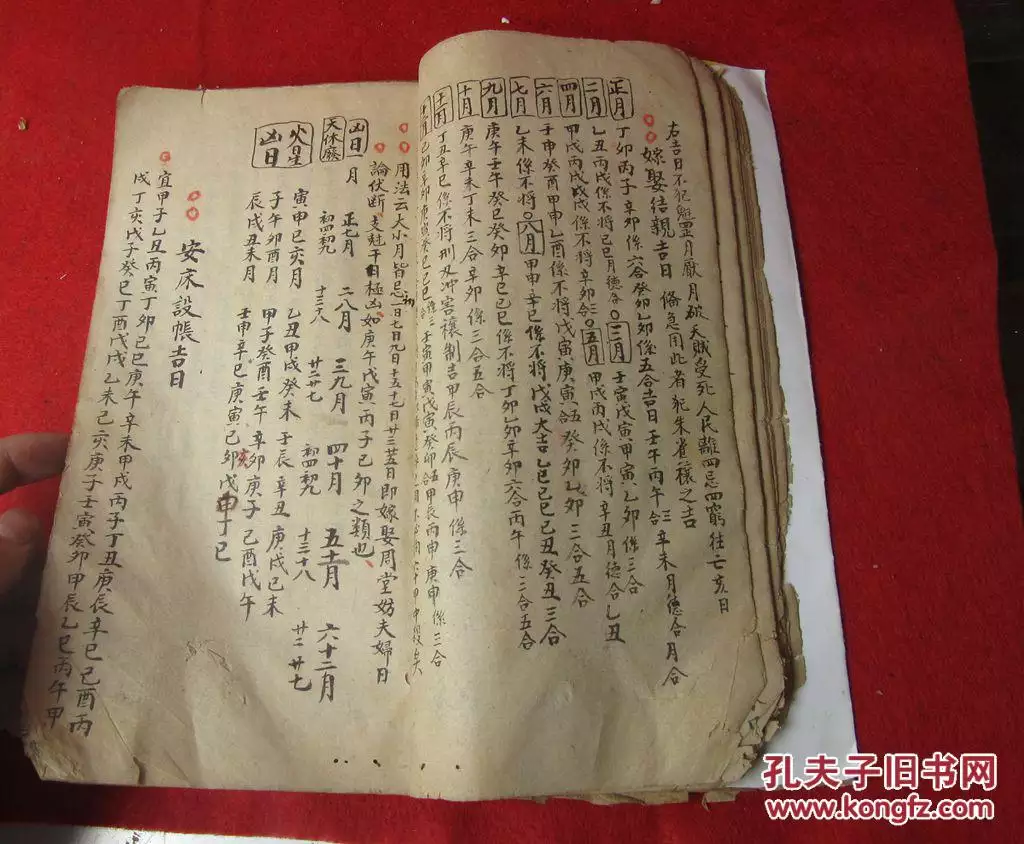 右吉日不犯魁罡月厭月破天賊受死人民離四忌四窮往亡亥日
嫁娶結親吉日 俻急用此者犯朱雀穰之吉
正月 丁卯丙子辛卯係六合癸卯乙卯係五合吉日壬午丙午合三辛未月德合月合
二月 乙丑丙戊係不将己巳月德合〇三月 壬寅戊寅甲寅乙卯係三合
四月 甲戌丙戌戊戌係不将辛卯合〇五月 甲戌丙戌係不将辛丑月德合乙丑
六月 壬申癸酉甲申乙酉係不将戊寅庚寅五合癸卯乙卯三合五合
七月 乙未係不将〇八月 甲申辛巳係不将戊戌大吉乙巳己巳丑癸丑三合
九月 庚午壬午癸巳癸卯辛巳己巳係不将丁卯乙卯辛卯六合丙午係三合五合
十月 庚午辛未丁未三合辛卯係三合五合
丁丑辛巳係不将刑冲害穰制吉甲辰丙辰庚申係三合
用法云大小月皆忌一日七日九日十五十七日廿三廿五日即嫁娶周堂妨夫婦日
論伏断支尅干日極凶如庚午戊寅丙子己卯之類也
凶日一月
天休廢 正七月 二八月 三九月 四十月 五十一月 六十二月
初四初九 十三十八 廿二廿七 初四初九 十三十八 廿二廿七
火星凶日 寅申巳亥月 乙丑甲戌癸未壬辰辛丑庚戌己未
子午卯酉月 甲子癸酉壬午辛卯庚子己酉戊午
辰戌丑未月 壬申辛巳庚寅己亥戊申丁巳
安床設帳吉日
宜甲子乙丑丙寅丁卯己巳庚午辛未甲戌丙子丁丑庚辰辛巳己酉丙
戌丁亥戊子癸巳丁酉戊戌乙未己亥庚子壬寅癸卯甲辰乙巳丙午甲
孔夫子旧书网
www.kongfz.com